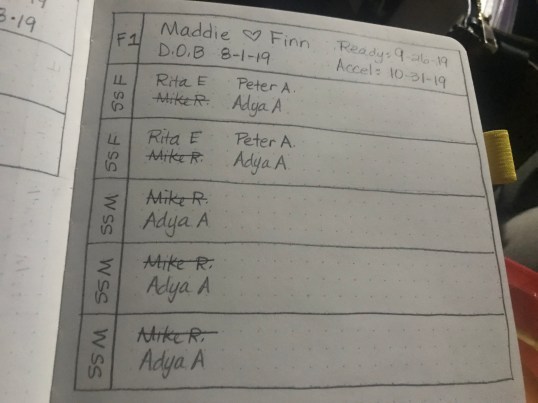 3·19
F1 Maddie ♡ Finn Ready: 9-26-19
D.O.B 8-1-19 Accel: 10-31-19
SSF Rita E Peter A.
Mike R. Adya A
SSF Rita E Peter A.
Mike R. Adya A
SSM Mike R.
Adya A
SSM Mike R.
Adya A
SSM Mike R.
Adya A